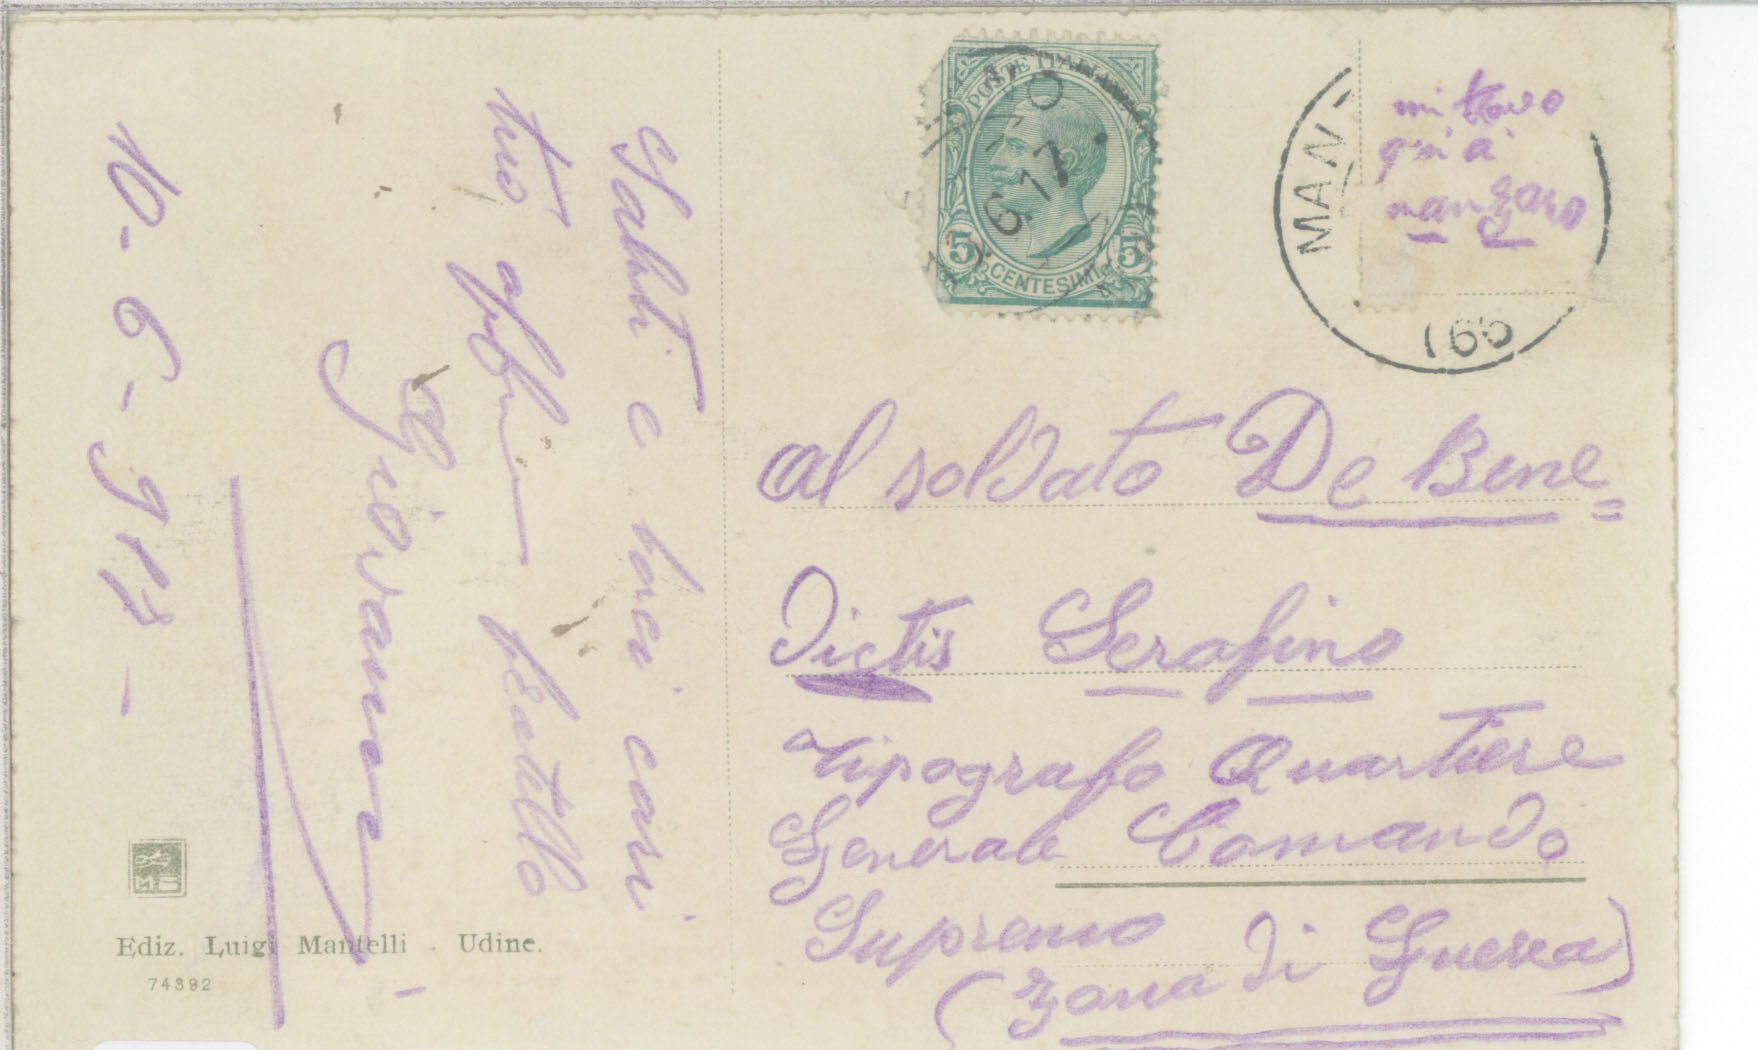 Saluti e baci cari
tuo aff. fratello
Giovanni
10-6-917-
POSTE ITALIANE
5 5
CENTESIMI
6.17
MAN
(66)
mi trovo
qui a
manzano
al soldato De Bene=
dictis Serafino
tipografo Quartiere
Generale Comando
Supremo
(zona di Guerra)
Ediz. Luigi Mantelli - Udine.
74392